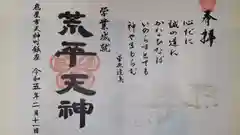 奉拝
心だに
誠の道に
かなひなば
いのらずとても
神やまもらむ
菅原道真
学業成就
荒平天神
鹿屋市天神町鎮座
令和五年二月十一日